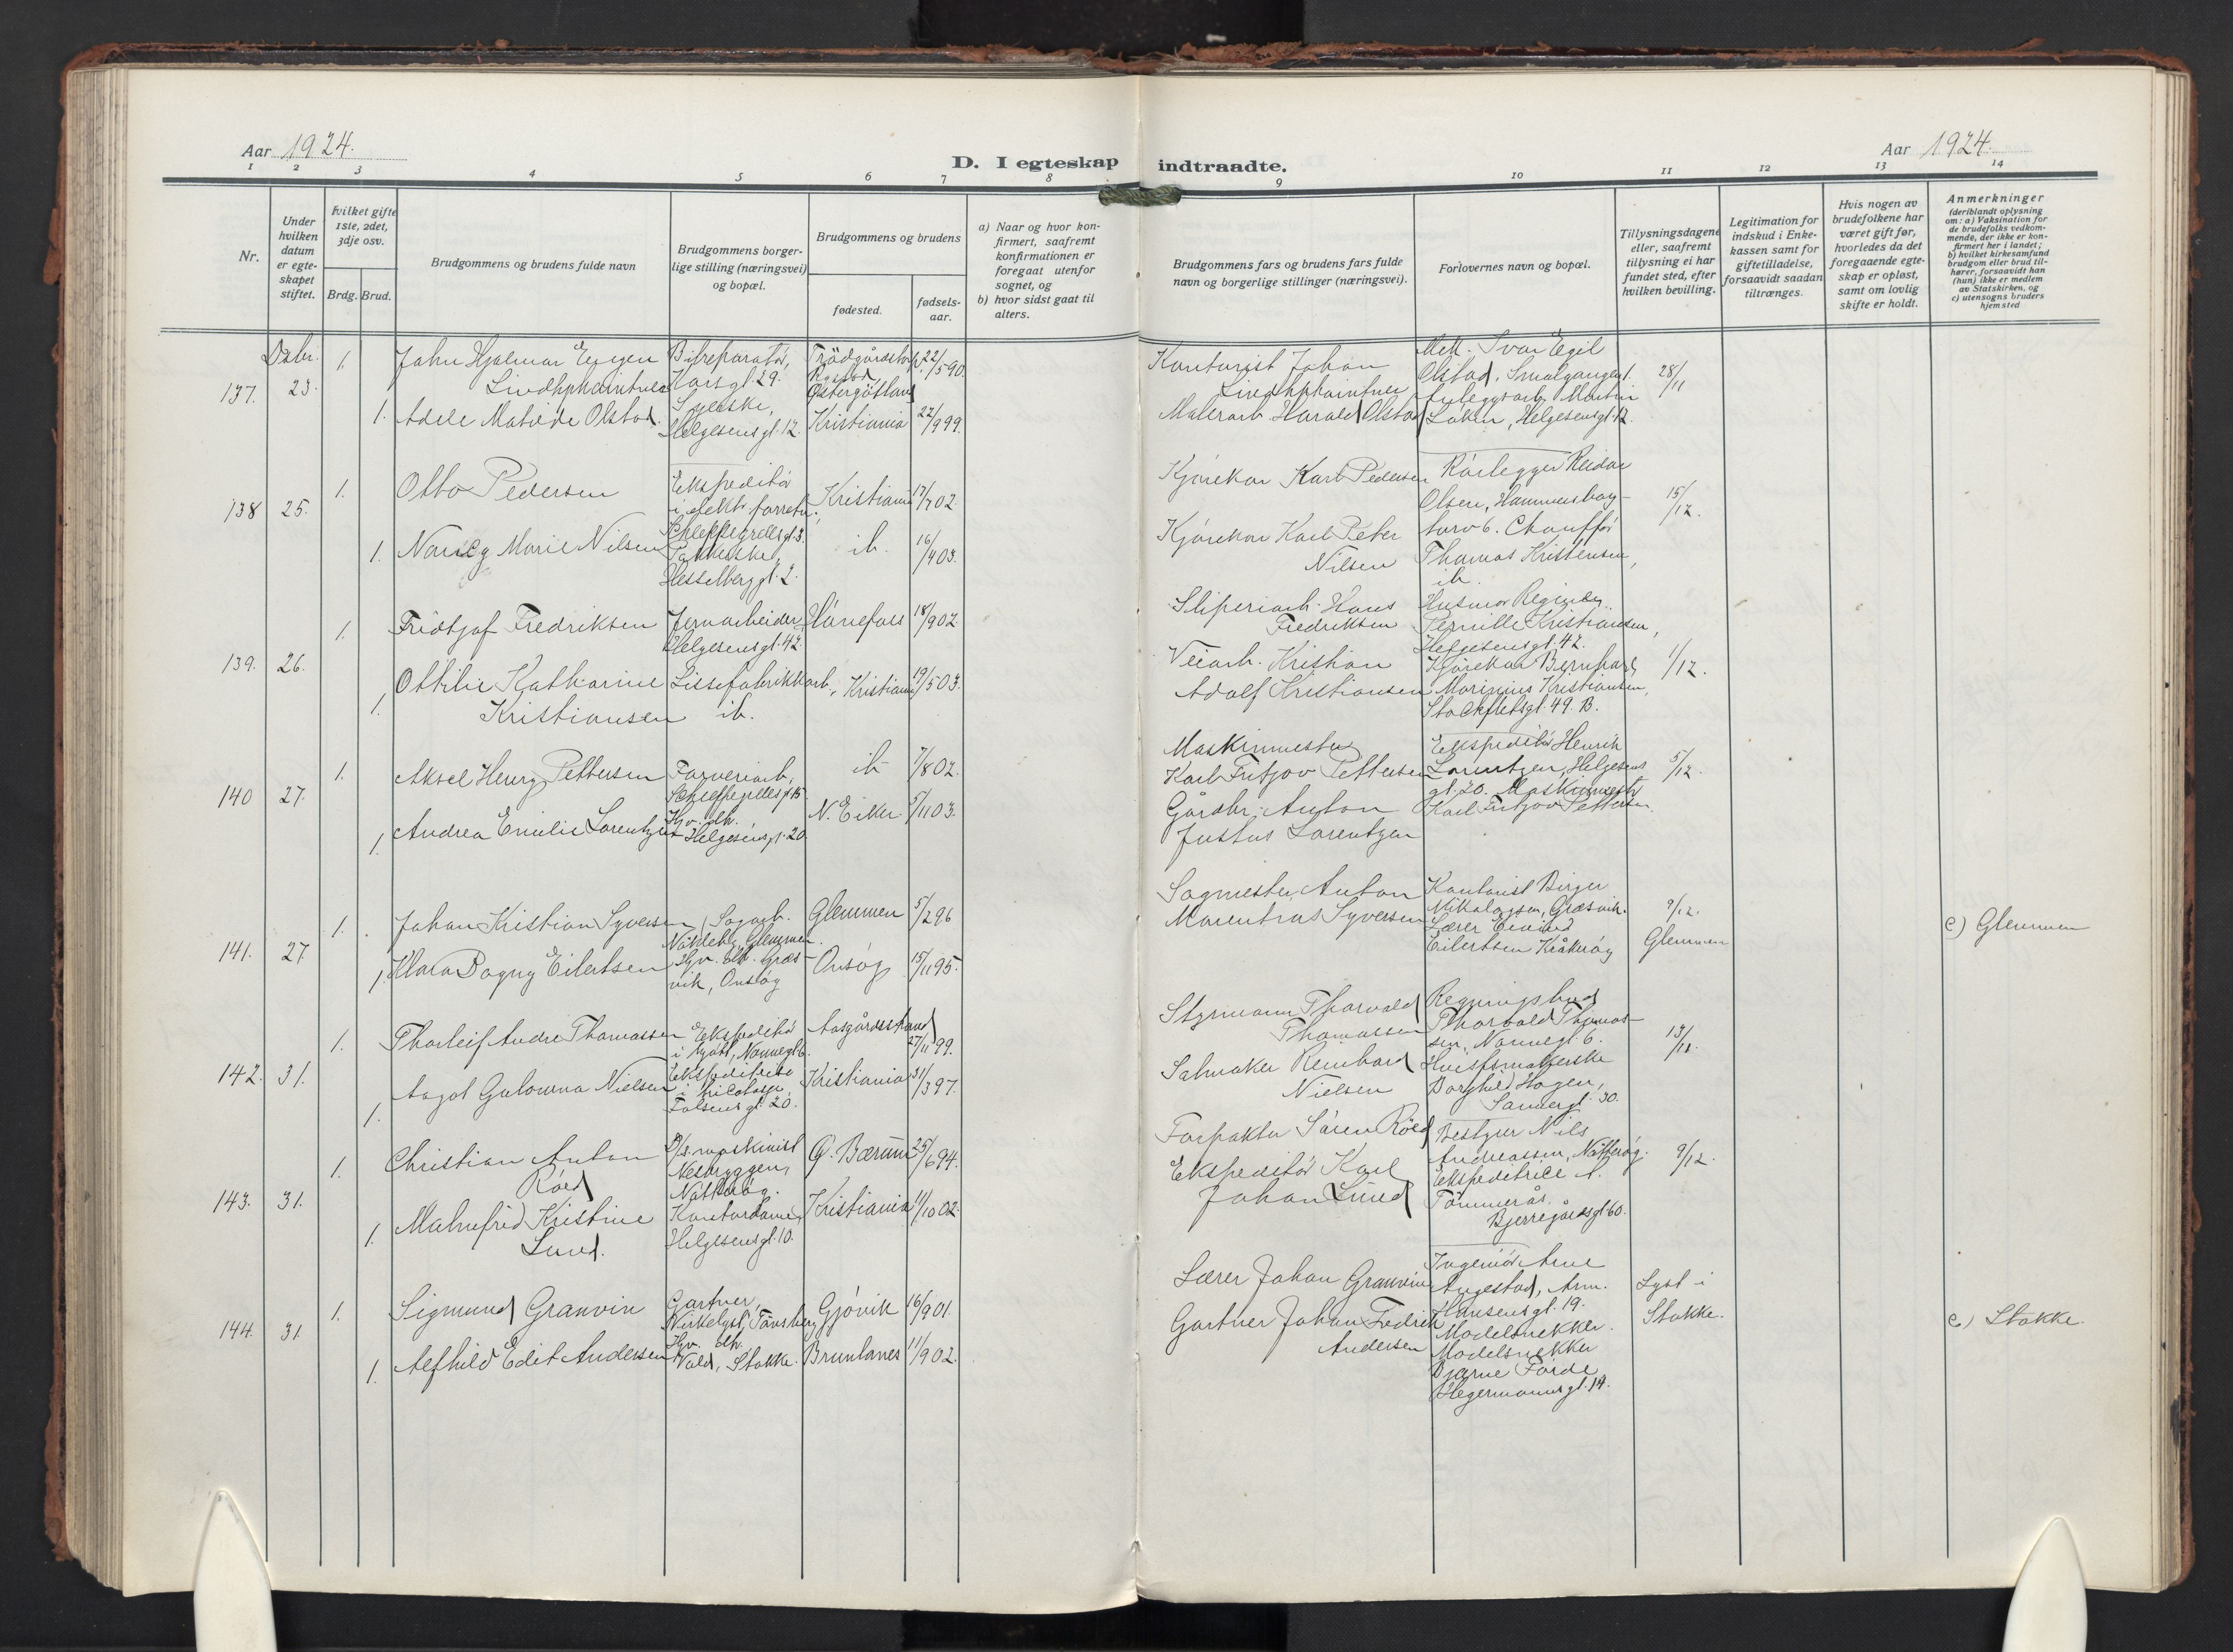 Aar 1924.
D. I egteskap indtraadte.
Aar 1924.
1 2 3 4 5 6 7 8 9 10 11 12 13 14
Nr.
Under hvilken datum er egteskapet stiftet.
hvilket gifte 1ste, 2det, 3dje osv.
Brdg. Brud.
Brudgommens og brudens fulde navn
Brudgommens borgerlige stilling (næringsvei) og bopæl.
Brudgommens og brudens
fødested.
fødselsaar.
a) Naar og hvor konfirmert, saafremt konfirmationen er foregaat utenfor sognet, og
b) hvor sidst gaat til alters.
Brudgommens fars og brudens fars fulde navn og borgerlige stillinger (næringsvei).
Forlovernes navn og bopæl.
Tillysningsdagene eller, saafremt tillysning ei har fundet sted, efter hvilken bevilling.
Legitimation for indskud i Enkekassen samt for giftetilladelse, forsaavidt saadan tiltrænges.
Hvis nogen av brudefolkene har været gift før, hvorledes da det foregaaende egteskap er opløst, samt om lovlig skifte er holdt.
Anmerkninger
(deriblandt oplysning om: a) Vaksination for de brudefolks vedkommende, der ikke er konfirmert her i landet; b) hvilket kirkesamfund brudgom eller brud tilhører, forsaavidt han (hun) ikke er medlem av Statskirken, og c) utensogns bruders hjemsted
Desbr.
137. 23. 1. John Hjalmar Eugen
Østergötland 22/5 90
Kontorist Johan
Olstad, Smalgangen 1.
28/11
1. Adele Matilde Olstad.
Syerske, Helgesensgt. 12.
Kristiania 22/9 99.
Malerarb. Harald Olstad
Løken, Helgesensgt. 12.
138 25. 1. Otto Pedersen
Ekspeditør
Schleppegrellsgt. 3.
Kristiania 17/7 02.
Kjørekar Karl Pedersen
Rørlegger Reidar
Olsen, Hammersborg-
torv 6. Chauffør
Thomas Kristensen,
ib.
15/12.
1. Nancy Marie Nilsen
Pakkerske,
Hesselberggt. 2.
ib. 16/4 03.
Kjørekar Karl Peter
Nilsen
139. 26. 1. Fridtjof Fredriksen
Jernarbeider
Helgesensgt. 42
Hønefoss 18/9 02
Sliperiarb. Hans
Fredriksen
Pernille Kristiansen,
Helgesensgt. 42.
Kjørekar Bernhard
Marinius Kristiansen,
Stockfletsgt. 49. B.
1/12.
1. Ottilie Katharine
Kristiansen
Lissefabrikkarb.,
ib.
Kristiania 19/5 03.
Veiarb. Kristian
Adolf Kristiansen
140 27. 1. Aksel Henry Pettersen
Farveriarb,
Schleppegrellesgt. 15
ib 7/8 02.
Maskinmester
Karl Fritjov Pettersen
Ekspeditør Henrik
Lorentzen, Helgesens
gt. 20. Maskinmestr
Karl Fritjov Pettersen.
5/12.
1. Andrea Emilie Lorentzen
Hv. dtr.
Helgesensgt. 20
N. Eiker 5/11 03.
Gårdbr. Anton
Justus Lorentzen
141. 27 1. Johan Kristian Syversen
Sagarb.
Glemmen.
Glemmen 5/2 96
Sagmester Anton
Marentius Syversen
Kontorist Birger
Nikolaysen, Græsvik.
Lærer Eivind
Eilertsen Kråkerøy
9/12.
Glemmen
c) Glemmen
1. Klara Dagny Eilertsen
Hv. dtr. Græs-
vik, Onsøy
Onsøy 15/11 95.
142. 31. 1. Thorleif Andre Thomassen
Ekspeditør
Nannegt. 6.
Aasgårdsstrand
27/11 99.
Styrmann Thorvald
Thomassen
Regningsbud
Thorvald Thomas-
sen, Nannegt. 6.
13/11.
1. Aagot Gulowna Nielsen
Ekspeditrise
i tricotage
Falsensgt. 20.
Kristiania 31/3 97.
Salmaker Reinhard
Nielsen
Borghild Hagen,
Sannergt. 30.
143. 31. 1. Christian Anton
Røed
D/s. maskinist
Nesbryggen,
Nøtterøy.
Ø. Bærum 25/6 94.
Forpakter Søren Røed
Bestyrer Nils
Andreassen, Nøtterøy.
Ekspeditrice A.
Tømmerås.
Bjerregårdsgt 60.
9/12.
1. Malmfrid Kristine
Lund.
Kontordame,
Helgesensgt. 10.
Kristiania 11/10 02.
Ekspeditør Karl
Johan Lund
144. 31. 1. Sigmund Granvin
Gartner,
Tønsberg
Gjøvik 16/9 01.
Lærer Johan Granvin
Ingeniør Arne
Angestad, Arm.
Hansensgt. 19.
Modelsnekker.
Modelsnekker
Bjarne Førde
Hegermannsgt. 14.
Lyst i
Stokke.
c) Stokke.
1. Alfhild Edit Andersen
Hv. dtr.
Vold, Stokke.
Brunlanes 11/9 02.
Gartner Johan Fredrik
Andersen